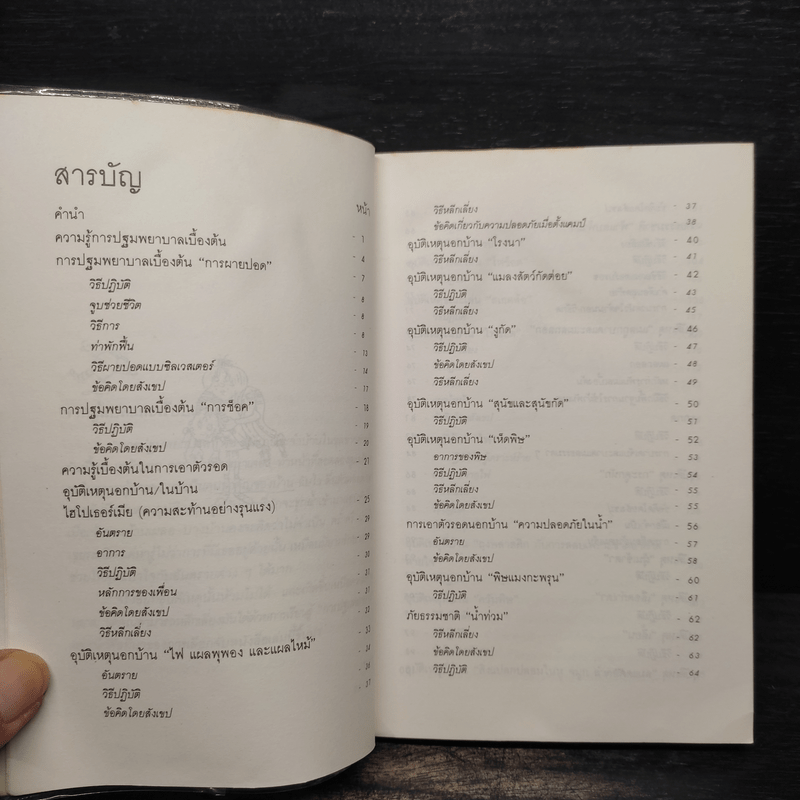 สารบัญ
หน้า
คำนำ
ความรู้การปฐมพยาบาลเบื้องต้น - 1
การปฐมพยาบาลเบื้องต้น “การผายปอด” - 4
วิธีปฏิบัติ - 7
จูบช่วยชีวิต - 8
วิธีการ - 8
ท่าพักฟื้น
วิธีผายปอดแบบซิลเวสเตอร์ - 14
ข้อคิดโดยสังเขป - 17
การปฐมพยาบาลเบื้องต้น “การช็อค” - 18
วิธีปฏิบัติ - 19
ข้อคิดโดยสังเขป - 20
ความรู้เบื้องต้นในการเอาตัวรอด - 21
อุบัติเหตุนอกบ้าน/ในบ้าน
ไฮโปเธอร์เมีย (ความสะท้านอย่างรุนแรง) - 25
อันตราย - 29
อาการ - 29
วิธีปฏิบัติ - 30
หลักการของเพื่อน - 31
ข้อคิดโดยสังเขป - 32
วิธีหลีกเลี่ยง - 33
อุบัติเหตุนอกบ้าน “ไฟ แผลพุพอง และแผลไหม้” - 34
อันตราย - 34
วิธีปฏิบัติ - 36
ข้อคิดโดยสังเขป - 37
วิธีหลีกเลี่ยง - 37
ข้อคิดเกี่ยวกับความปลอดภัยเมื่อตั้งแคมป์ - 38
อุบัติเหตุนอกบ้าน “โรงนา” - 40
วิธีหลีกเลี่ยง - 41
อุบัติเหตุนอกบ้าน “แมลงสัตว์กัดต่อย” - 42
วิธีปฏิบัติ - 43
วิธีหลีกเลี่ยง - 45
อุบัติเหตุนอกบ้าน “งูกัด” - 46
วิธีปฏิบัติ - 47
ข้อคิดโดยสังเขป - 48
วิธีหลีกเลี่ยง - 49
อุบัติเหตุนอกบ้าน “สุนัขและสุนัขกัด” - 50
วิธีปฏิบัติ - 51
อุบัติเหตุนอกบ้าน “เห็ดพิษ” - 52
อาการของพิษ - 53
วิธีปฏิบัติ - 54
วิธีหลีกเลี่ยง - 55
ข้อคิดโดยสังเขป - 55
การเอาตัวรอดนอกบ้าน “ความปลอดภัยในน้ำ” - 56
อันตราย - 57
ข้อคิดโดยสังเขป - 58
อุบัติเหตุนอกบ้าน “พิษแมงกะพรุน” - 60
วิธีปฏิบัติ - 61
ภัยธรรมชาติ “น้ำท่วม” - 62
วิธีหลีกเลี่ยง - 62
ข้อคิดโดยสังเขป - 63
วิธีปฏิบัติ - 64